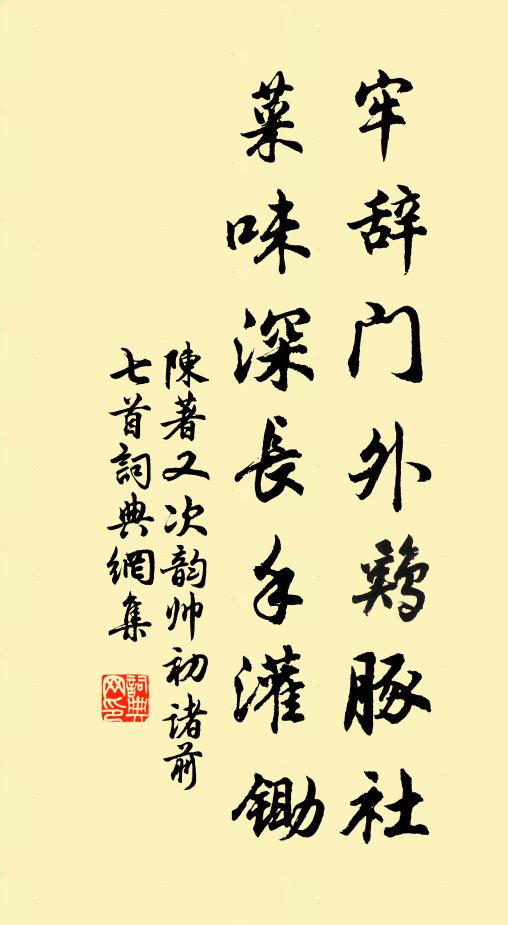 牢辞门外鷄豚社
菜味深長手灌锄
陳著又次韵帅初诸前
七首詞典網集
詞典网印